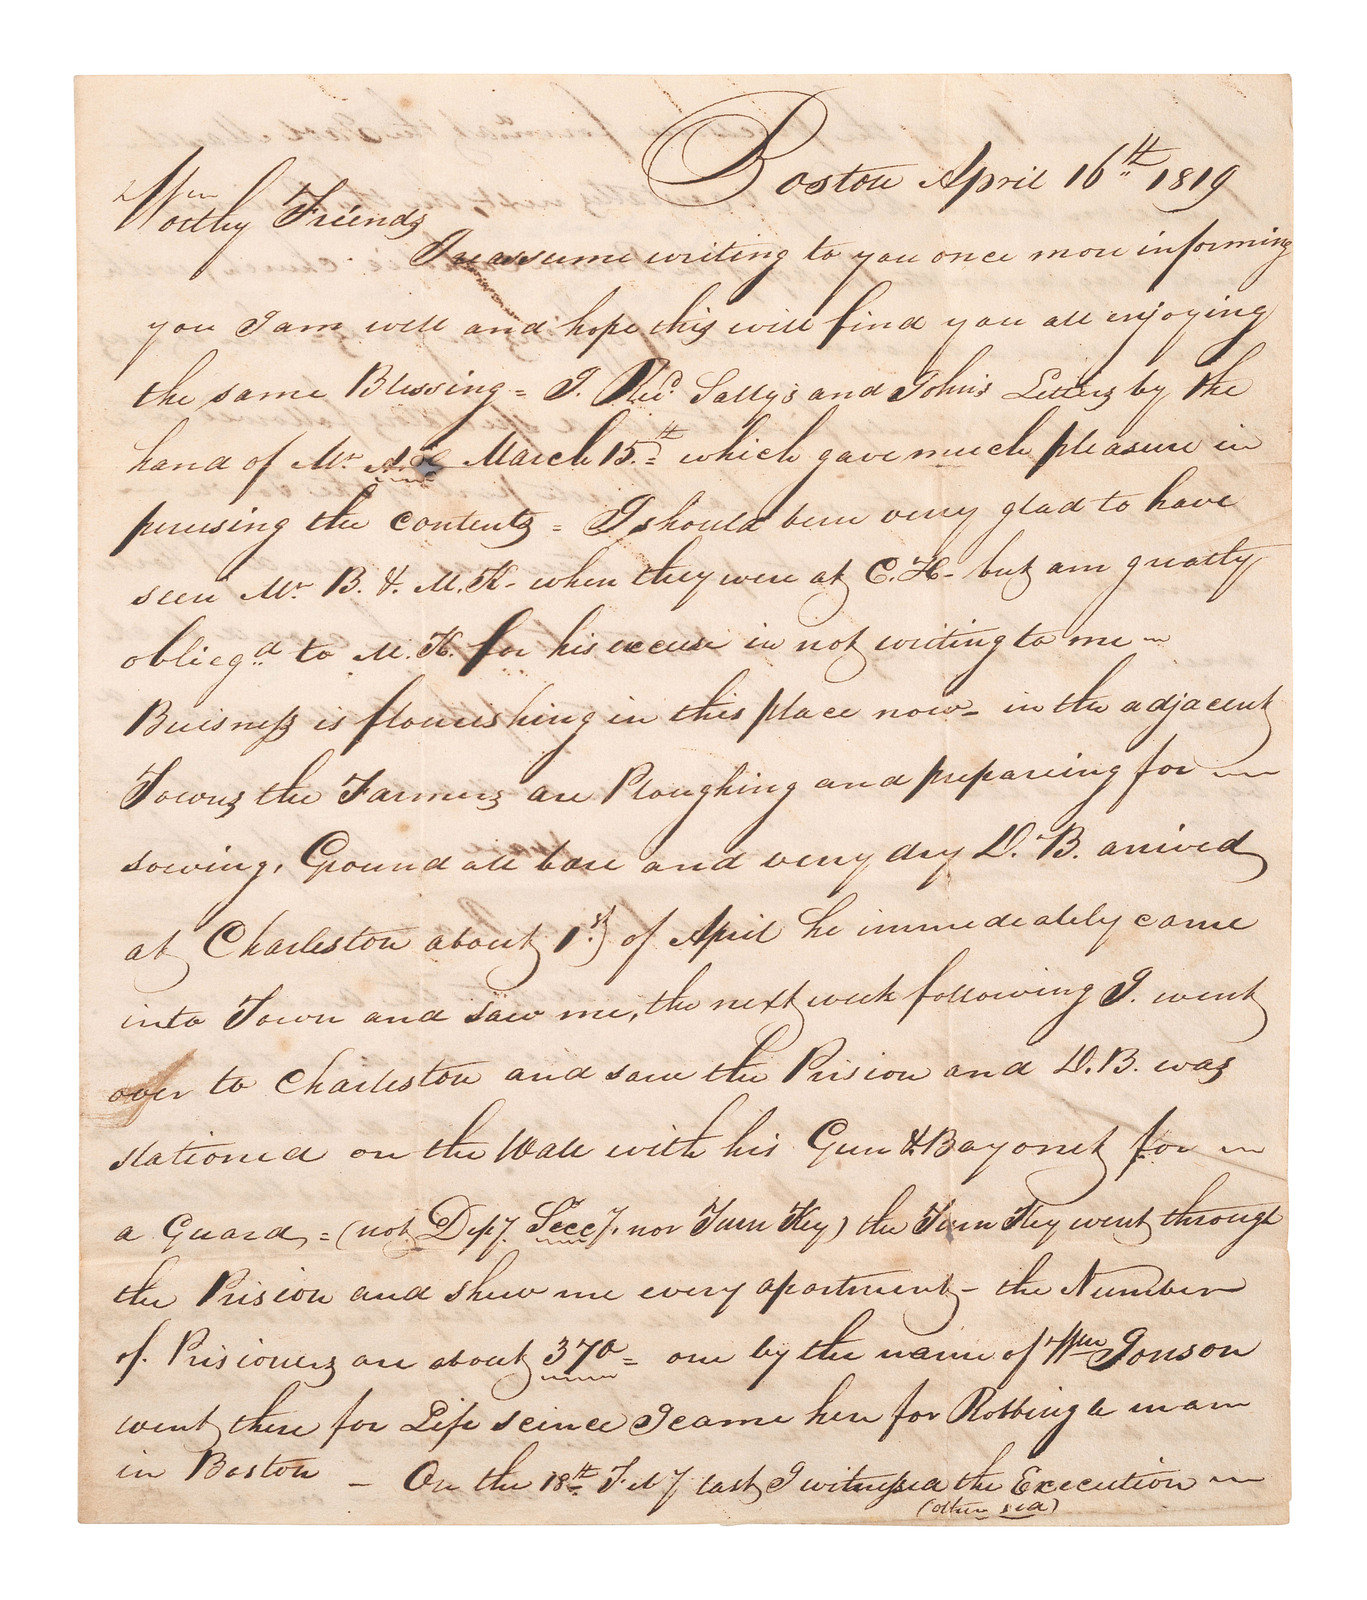 Boston April 16th 1819
Worthy Friends
I reassume writing to you once more informing
you I am well and hope this will find you all enjoying
the same Blessing = I. Recd. Sally's and John's Letters by the
hand of Mr. March 15th = which gave much pleasure in
perusing the contents = I should been very glad to have
seen Mr B. & M. K- when they were at C. H- but am greatly
obliegd to M. K. for his excuse in not writing to me ~
Buisness is flourishing in this place now - in the adjacent
Towns the Farmers are Ploughing and prepareing for
sowing, Ground all bare and very dry D. B. arrived
at Charleston about 1st of April he immedeately came
into Town and saw me, the next week following I. went
over to Charleston and saw the Prision and D. B. was
stationed on the Wall with his Gun & Bayonet for
a Guard, = (not Depy. Secey. nor Turn Key) the Turn Key went through
the Prision and shew me every apartment - the Number
of. Prisioners are about 370 = one by the name of Wm Jonson
went there for Life seince I came here for Robbing a man
in Boston - On the 18th Feby last I witnessed the Execution
(other sid)